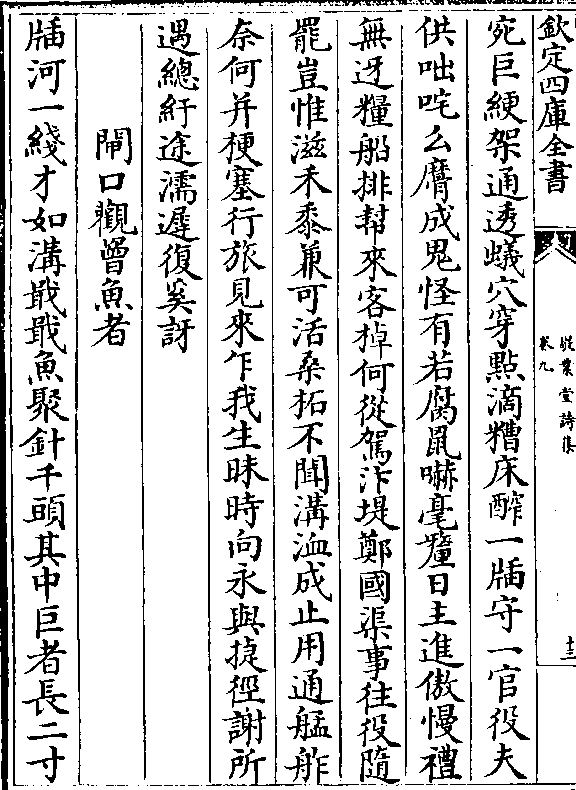 欽定四庫全書
敬業堂詩集
卷九
十三
宛巨綆架通透蟻穴穿點滴糟床醡一牐守一官役夫
供咄咤么麿成鬼怪有若腐鼠嚇毫釐日主進傲慢禮
無迓糧船排幇來客棹何從駕汴堤鄭國渠事往役隨
罷豈惟滋禾黍兼可活桑拓不聞溝洫成止用通艋舴
奈何并梗塞行旅見來乍我生昧時向永與捷徑謝所
遇總紆途濡遲復奚訝
閘口觀罾魚者
牐河一綫才如溝戢戢魚聚針千頭其中巨者長二寸